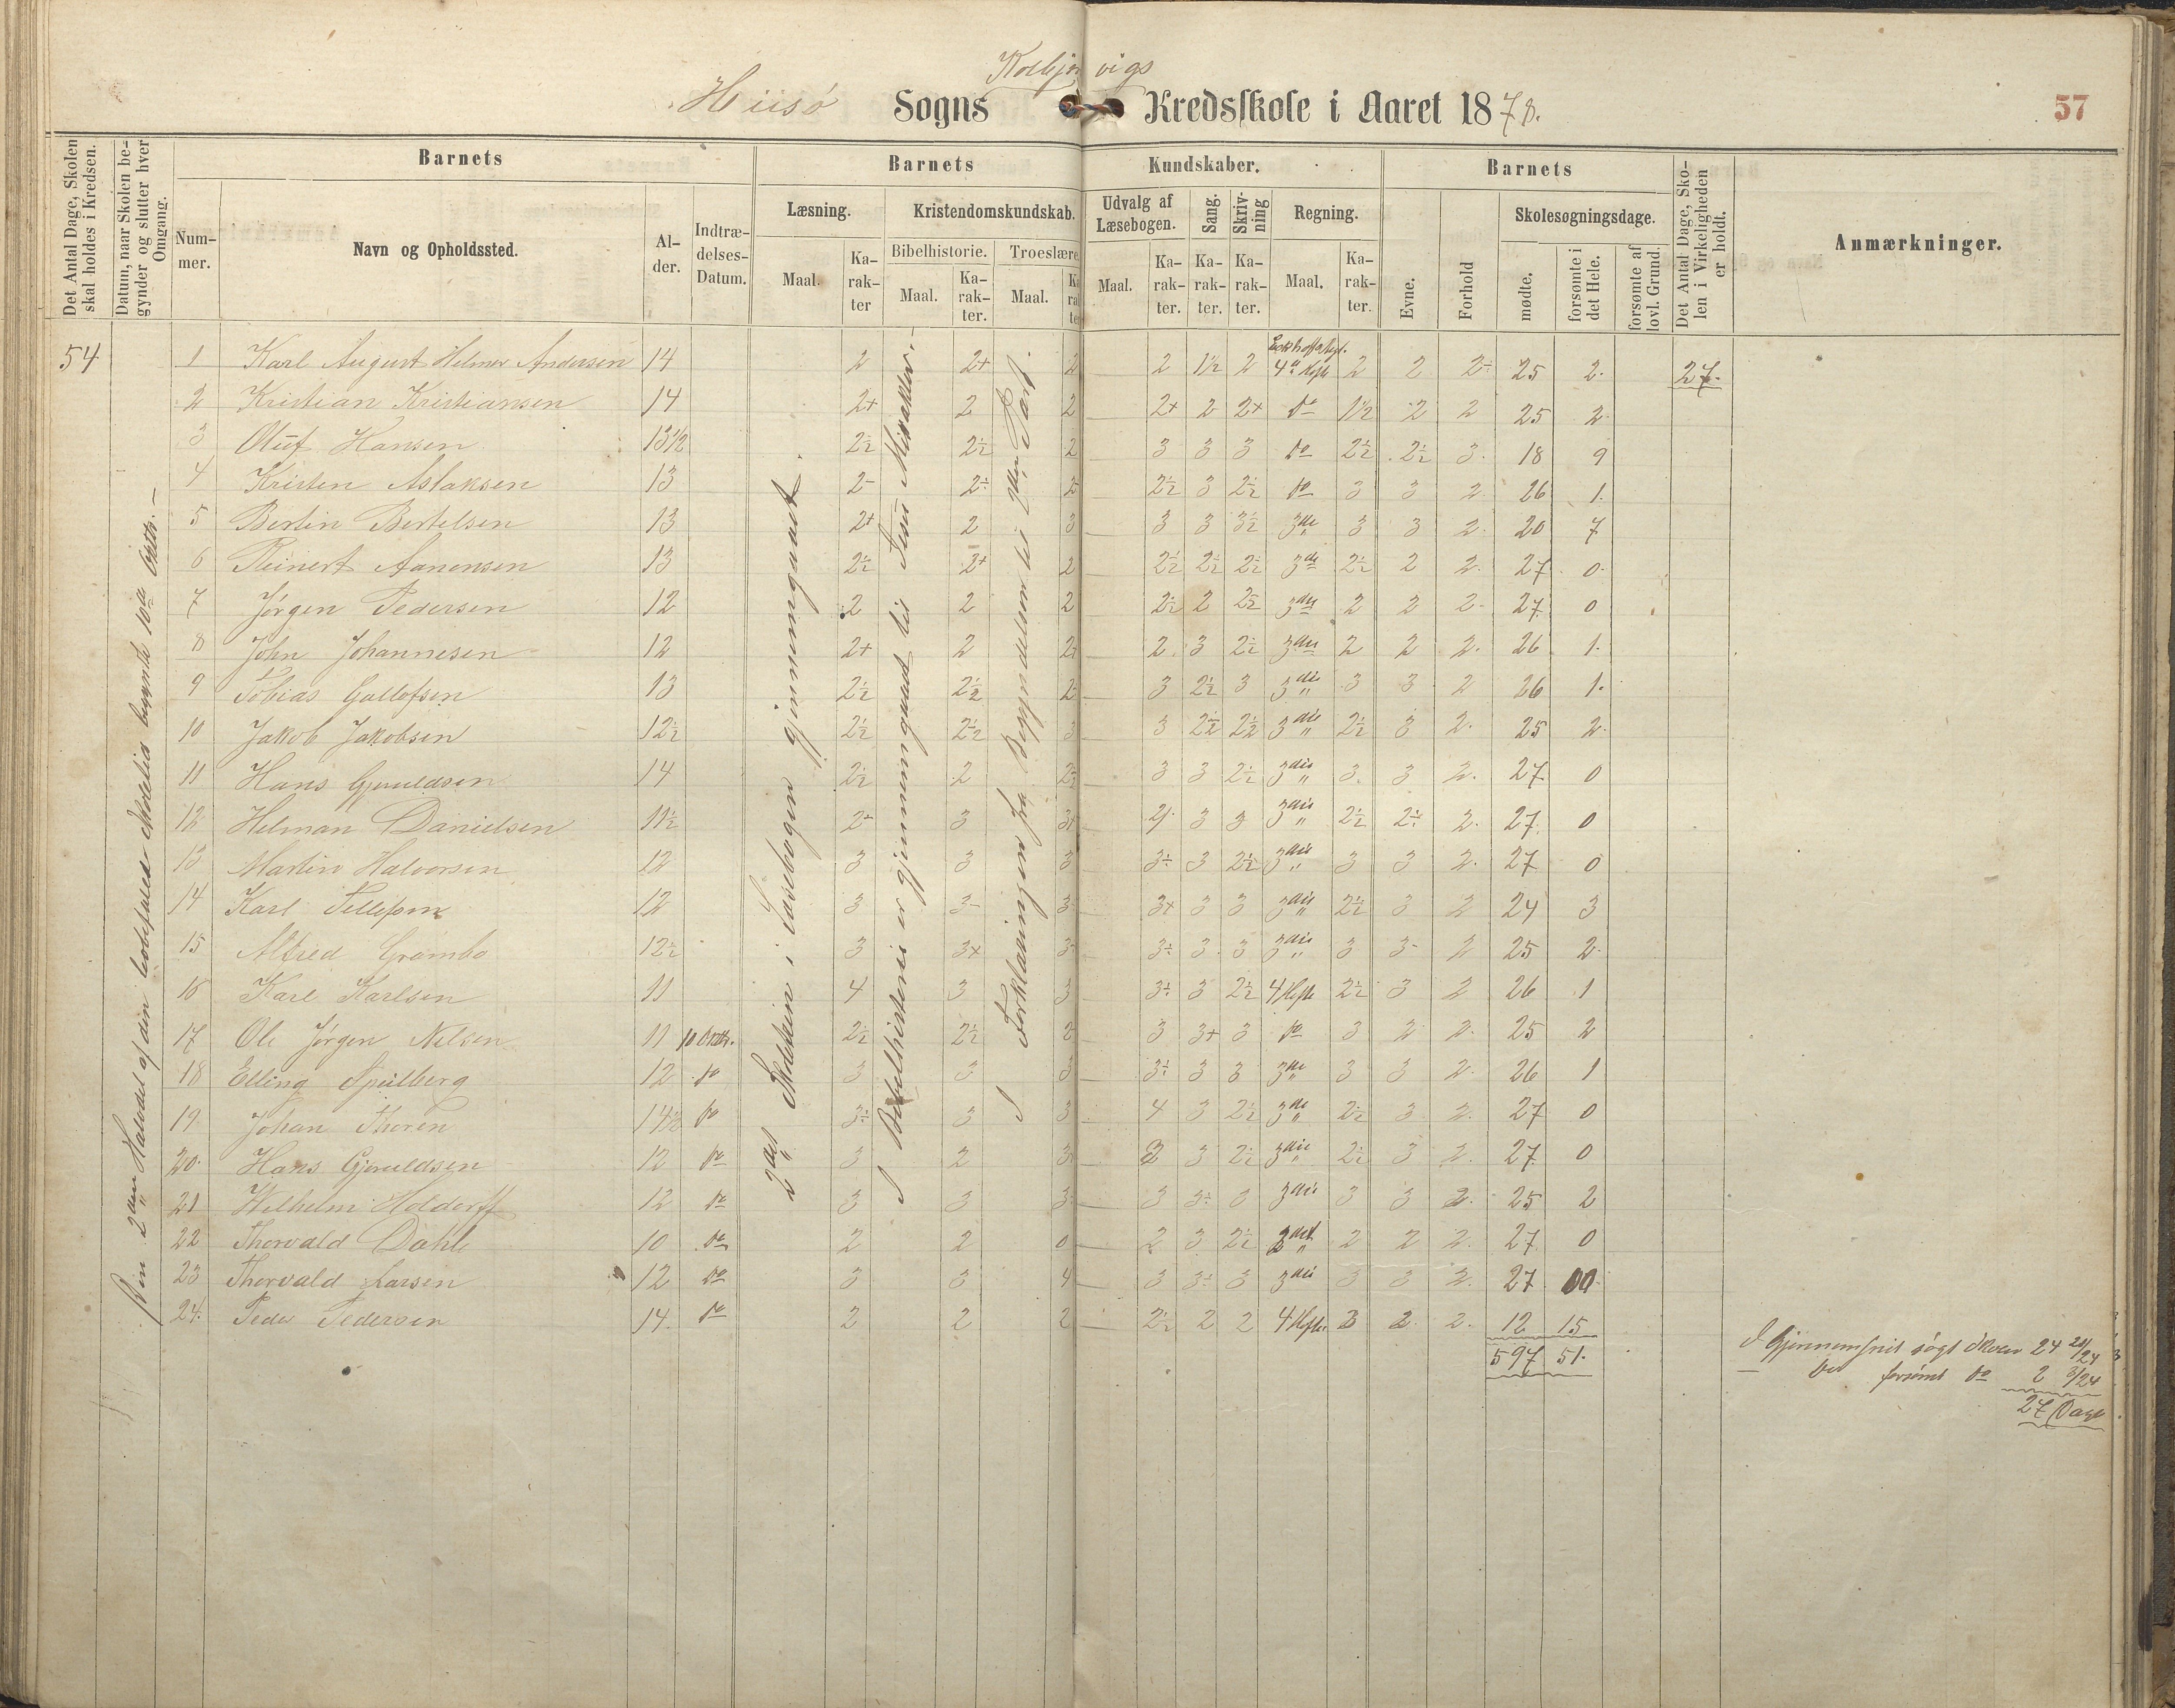 Kolbjørnvigs
Hiisø Sogns Kredsskole i Aaret 1878.
57
Det Antal Dage, Skolen skal holdes i Kredsen.
Datum, naar Skolen begynder og slutter hver Omgang.
Barnets
Barnets
Kundskaber.
Barnets
Det Antal Dage, Skolen i Virkeligheden er holdt.
Anmærkninger.
Nummer.
Navn og Opholdssted.
Alder.
Indtrædelses-Datum.
Læsning.
Kristendomskundskab.
Udvalg af Læsebogen.
Sang.
Skrivning
Regning.
Evne.
Forhold
Skolesøgningsdage.
Bibelhistorie.
Troeslære.
Maal.
Karakter
Maal.
Karakter.
Maal.
Karakter
Maal.
Karakter.
Karakter.
Karakter.
Maal.
Karakter.
mødte.
forsømte i det Hele.
forsømte af lovl. Grund.
54
27.
Den 2den Halvdel af den lovbefalede Skoletid begyndte 10de Oktbr.
2det Skoletrin i Læsebogen gjennemgaaet.
I Bibelhistorie er gjennemgaaet til Jesu Mirakler.
I Forklaringen fra Begyndelsen til 2den Part.
1 Karl August Helmer Andersen 14 2 2+ 2 2 1½ 2 4de Hefte 2 2 2÷ 25 2.
2 Kristian Kristiansen 14 2+ 2 2 2+ 2 2+ do 1½ 2 2 25 2
3 Oluf Hansen 13½ 2½ 2½ 2 3 3 3 do 2½ 2½ 3. 18 9
4 Kristen Aslaksen 13 2- 2÷ 2 2½ 3 2½ do 3 3 2 26 1.
5 Bertin Bertelsen 13 2+ 2 3 3 3 3½ 3die 3 3 2 20 7
6 Reinert Aanensen 13 2½ 2+ 2 2½ 2½ 2½ 3die 2½ 2 2 27 0.
7 Jørgen Pedersen 12 2 2 2 2½ 2 2½ 3die 2 2 2 27 0
8 John Johannesen 12 2+ 2 2+ 2 3 2½ 3die 2 2 2. 26 1.
9 Tobias Gullofsen 13 2½ 2½ 2 3 2½ 3 3die 3 3 2 26 1.
10 Jakob Jakobsen 12½ 2½ 2½ 3 3 2½ 2½ 3die 2½ 3 2. 25 2
11 Hans Gjeruldsen 14 2½ 2 2½ 3 3 2½ 3die 3. 3 2. 27 0
12 Helman Danielsen 11½ 2+ 3 3+ 2 3 3 3die 2½ 2÷ 2. 27. 0
13 Martin Halvorsen 12 3 3 3 3÷ 3 2½ 3die 3 3 2. 27 0
14 Karl Tellefsen 12 3 3- 3 3+ 3 3 3die 2½ 3 2 24 3
15 Alfred Grømbo 12½ 3 3+ 3 3÷ 3 3 3die 3 3- 2 25 2
16 Karl Karlsen 11 4 3 3 3÷ 3 2½ 4 Hefte 2½ 3 2 26 1
17 Ole Jørgen Nilsen 11 10 Oktbr. 2½ 2½ 2 3 3+ 3 do 3 2 2. 25 2
18 Elling Spilberg 12 do 3 3 3 3÷ 3 3 3die 3 3 2. 26 1
19 Johan Thoren 14½ do 3÷ 3 3 4 3 2½ 3die 2½ 3 2. 27 0
20. Hans Gjeruldsen 12 do 3 2 3 2 3 2½ 3die 2½ 3 2. 27. 0
21 Wilhelm Holdorff 12 do 3 3 3 3 3÷ 3 3die 3 3 2. 25 2
22 Thorvald Dahle 10 do 2 2 0 2 3 2½ 2det 2 2 2. 27. 0
23 Thorvald Larsen 12 do 3 3 4 3 3÷ 3 3die 3 3 2. 27 0
24. Peder Pedersen 14. do 2 2 2 2½ 2 2 4 Hefte 3 2 2. 12 15
597 51.
I Gjennemsnit søgt Skolen 24 21/24
— Do forsømt do 2 3/24
27 Dage